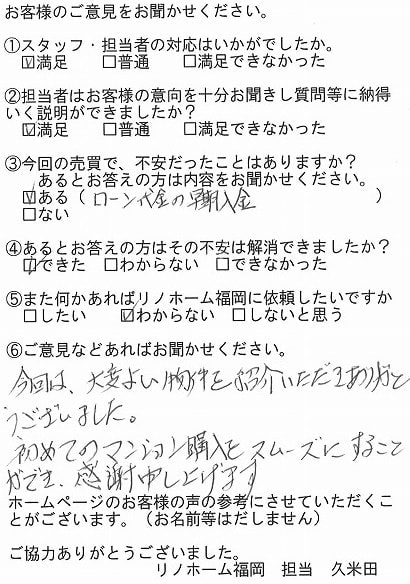 お客様のご意見をお聞かせください。
①スタッフ・担当者の対応はいかがでしたか。
☑満足 □普通 □満足できなかった
②担当者はお客様の意向を十分お聞きし質問等に納得
いく説明ができましたか？
☑満足 □普通 □満足できなかった
③今回の売買で、不安だったことはありますか？
あるとお答えの方は内容をお聞かせください。
☑ある（ローン代金の早期入金）
□ない
④あるとお答えの方はその不安は解消できましたか？
☑できた □わからない □できなかった
⑤また何かあればリノホーム福岡に依頼したいですか
□したい ☑わからない □しないと思う
⑥ご意見などあればお聞かせください。
今回は、大変よい物件を紹介いただきありがと
うございました。
初めてのマンション購入をスムーズにすること
ができ、感謝申し上げます
ホームページのお客様の声の参考にさせていただくこ
とがございます。（お名前等はだしません）
ご協力ありがとうございました。
リノホーム福岡 担当 久米田